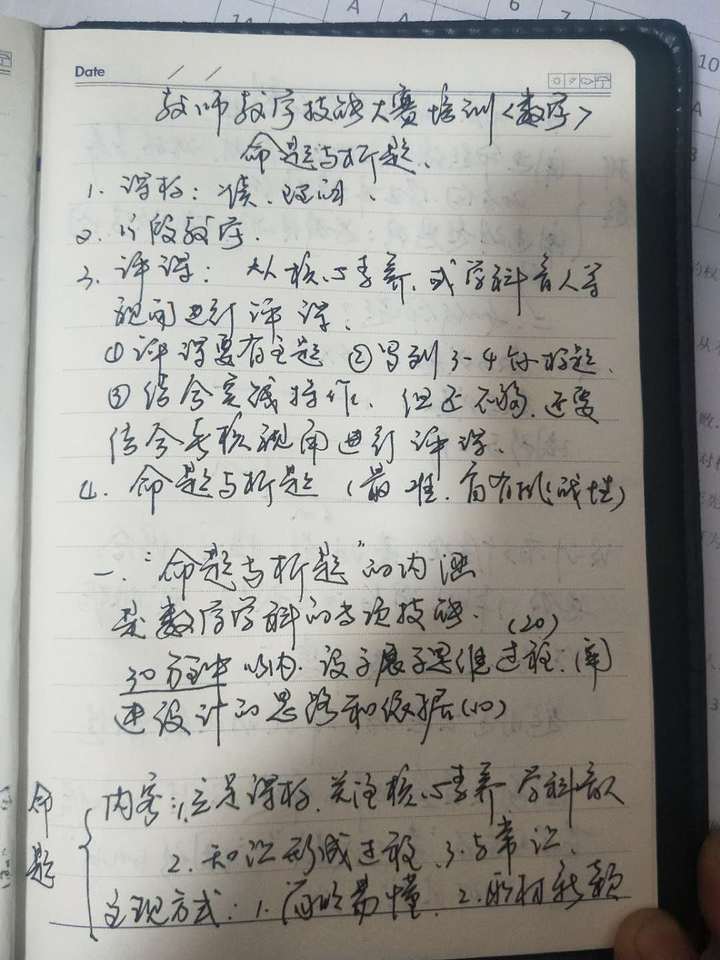 Date
教师教学技能大赛培训<数学>
命题与析题.
1. 课标: 读、理、用、
2. 片段教学.
3. 评课: 从核心素养, 或学科育人等
视角进行评课.
① 评课要有主题 ② 写到3-4个标题.
③ 结合实践操作, 但还不够, 还要
结合考核视角进行评课.
4. 命题与析题 (最难, 富有挑战性)
一. "命题与析题"的内涵
是数学学科的专项技能. (20)
30分钟以内. 设子展子思维过程.
建设计的思路和依据 (10)
命题
内容: 1.立足课标, 关注核心素养 学科育人
2. 知识形成过程. 3. 与常识.
呈现方式: 1. 简明易懂. 2. 取材新颖